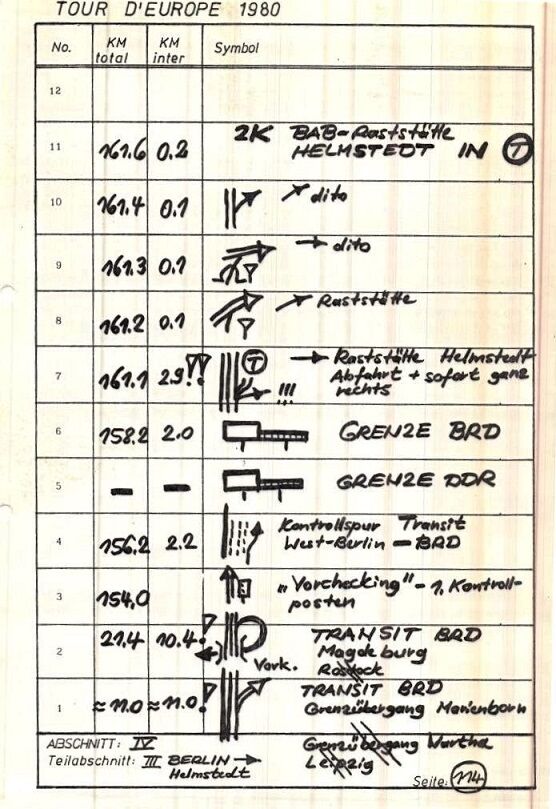 TOUR D'EUROPE 1980
No. KM total KM inter Symbol
12
11 161.6 0.2 2K BAB-Raststätte
HELMSTEDT IN T
10 161.4 0.1 dito
9 161.3 0.1 dito
8 161.2 0.1 Raststätte
7 161.1 2.9!! T !!! Raststätte Helmstedt
Abfahrt + sofort ganz
rechts
6 158.2 2.0 GRENZE BRD
5 – – GRENZE DDR
4 156.2 2.2 Kontrollspur Transit
West-Berlin – BRD
3 154.0 "Vorchecking" – 1. Kontroll-
posten
2 21.4 10.4! Vork. TRANSIT BRD
Magdeburg
Rostock
1 ≈11.0 ≈11.0! TRANSIT BRD
Grenzübergang Marienborn
Grenzübergang Wartha
Leipzig
ABSCHNITT: IV
Teilabschnitt: III BERLIN →
Helmstedt
Seite: 114